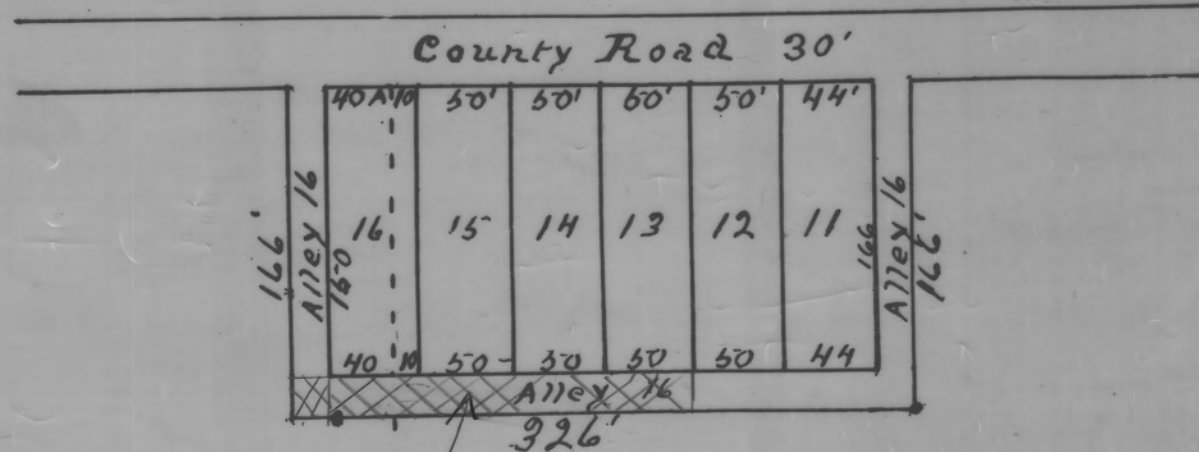 County Road 30'
40 A' 10 50' 50' 50' 50' 44'
166'
Alley 16
150
16 15 14 13 12 11
166
Alley 16
166'
40 10 50 50 50 50 44
Alley 16
326'